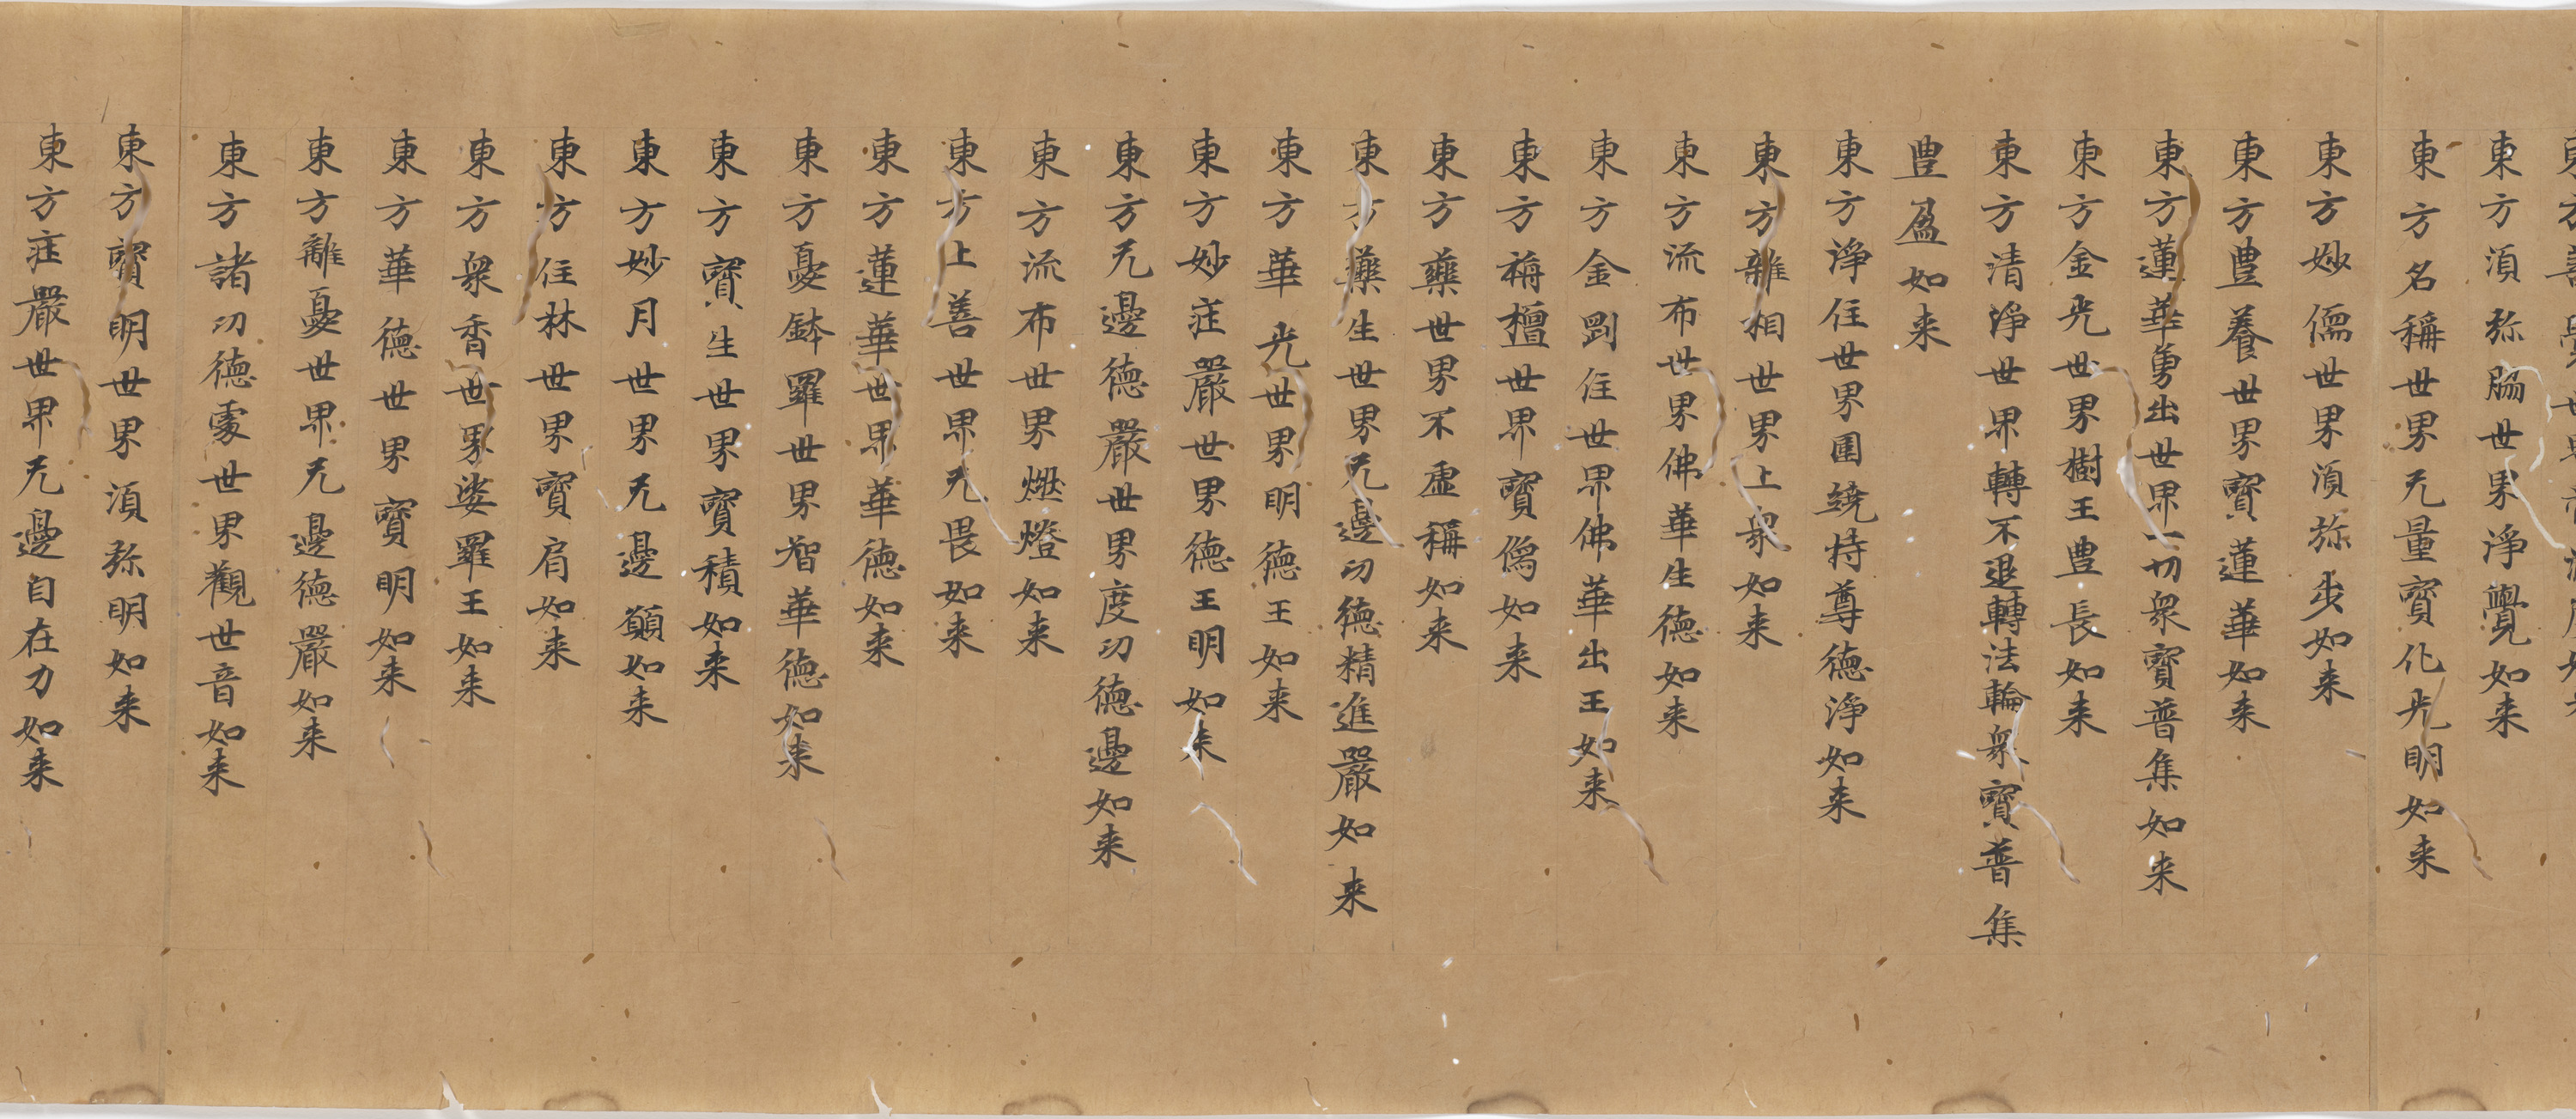 東方須弥脇世界淨覺如来
東方名稱世界无量寳化光明如来
東方妙儒世界須弥步如来
東方豊養世界寳蓮華如来
東方蓮華勇出世界一切衆寳普集如来
東方金光世界樹王豊長如来
東方清淨世界轉不退轉法輪衆寳普集
豊盈如来
東方淨住世界圍繞持尊德淨如来
東方離相世界上衆如来
東方流布世界佛華生德如来
東方金剛住世界佛華出王如来
東方栴檀世界寳像如来
東方藥世界不虚稱如来
東方藥生世界无邊功德精進嚴如来
東方華光世界明德王如来
東方妙莊嚴世界德王明如来
東方无邊德嚴世界度功德邊如来
東方流布世界燃燈如来
東方上善世界无畏如来
東方蓮華世界華德如来
東方憂鉢羅世界智華德如来
東方寳生世界寳積如来
東方妙月世界无邊願如来
東方住林世界寳肩如来
東方衆香世界娑羅王如来
東方華德世界寳明如来
東方離憂世界无邊德嚴如来
東方諸功德處世界觀世音如来
東方寳明世界須弥明如来
東方莊嚴世界无邊自在力如来